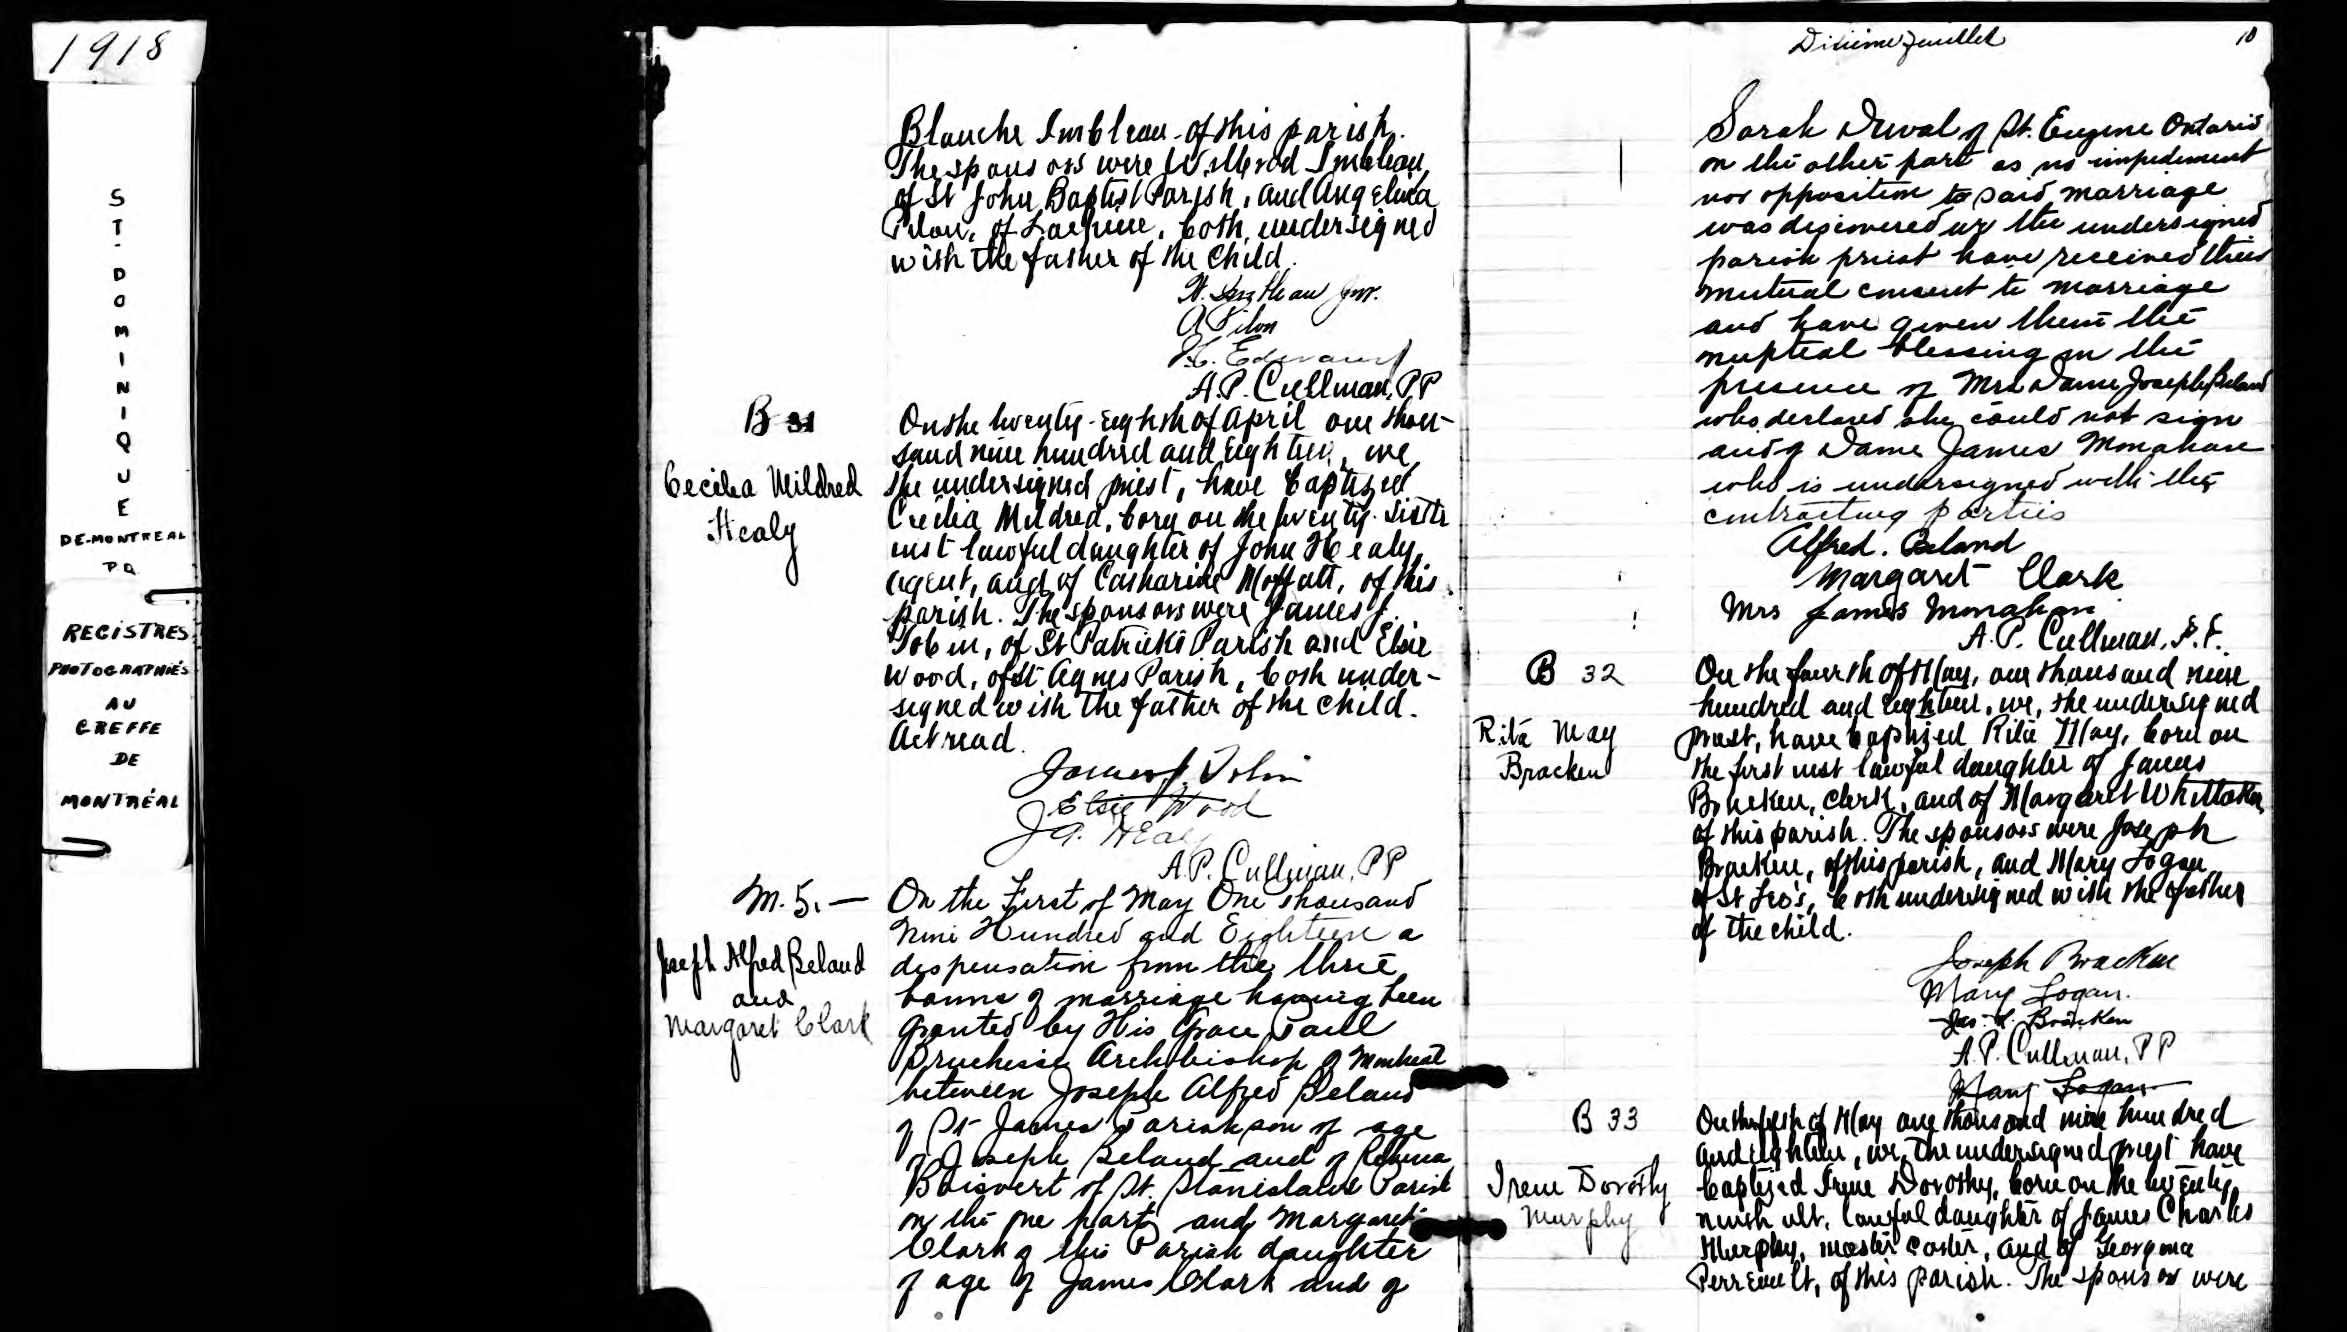 1918
ST-DOMINIQUE
DE-MONTREAL
PQ
REGISTRES
PHOTOGRAPHIÉS
AU
GREFFE
DE
MONTRÉAL
Blanche Imbleau of this parish.
The sponsors were Willerod Imbleau
of St John Baptist Parish, and Angelina
Pilon, of Lachine, both undersigned
with the father of the child.
A Pilon
A.P. Cullinan, PP
B 31
Cecilia Mildred
Healy
On the twenty-eighth of April one thou-
sand nine hundred and eighteen, we
the undersigned priest, have baptized
Cecilia Mildred, born on the twenty-sixth
inst lawful daughter of John Healy,
agent, and of Catharine Moffatt, of this
parish. The sponsors were James J.
Tobin, of St Patrick's Parish and Elsie
Wood, of St Agnes Parish, both under-
signed with the father of the child.
Act read.
James J. Tobin
Elsie Wood
J. Healy
A.P. Cullinan, PP
M. 5. —
Joseph Alfred Beland
and
Margaret Clark
On the First of May One thousand
Nine Hundred and Eighteen a
dispensation from the three
banns of marriage having been
granted by His Grace Paul
Bruchesi Archbishop of Montreal
between Joseph Alfred Beland
of St James Parish son of age
of Joseph Beland and of
Boisvert of St. Stanislaus Parish
on the one part and Margaret
Clark of this Parish daughter
of age of James Clark and of
Dixième feuillet
10
Sarah Duval of St. Eugene Ontario
on the other part as no impediment
nor opposition to said marriage
was discovered we the undersigned
parish priest have received their
mutual consent to marriage
and have given them the
nuptial blessing in the
presence of Mrs Dame Joseph Beland
who declared she could not sign
and of Dame James Monahan
who is undersigned with the
contracting parties
Alfred. Beland
Margaret Clark
Mrs James Monahan
A.P. Cullinan, P.P.
B 32
Rita May
Bracken
On the fourth of May, one thousand nine
hundred and eighteen, we, the undersigned
priest, have baptized Rita May, born on
the first inst lawful daughter of James
Bracken, clerk, and of Margaret Whittaker
of this parish. The sponsors were Joseph
Bracken, of this parish, and Mary Logan
of St Leo's, both undersigned with the father
of the child.
Joseph Bracken
Mary Logan.
Jas. Bracken
A.P. Cullinan, PP
Mary Logan
B 33
Irene Dorothy
Murphy
On the fifth of May one thousand nine hundred
and eighteen, we, the undersigned priest have
baptized Irene Dorothy, born on the twenty
ninth ult. lawful daughter of James Charles
Murphy, master carter, and of Georgina
Perreault, of this parish. The sponsors were